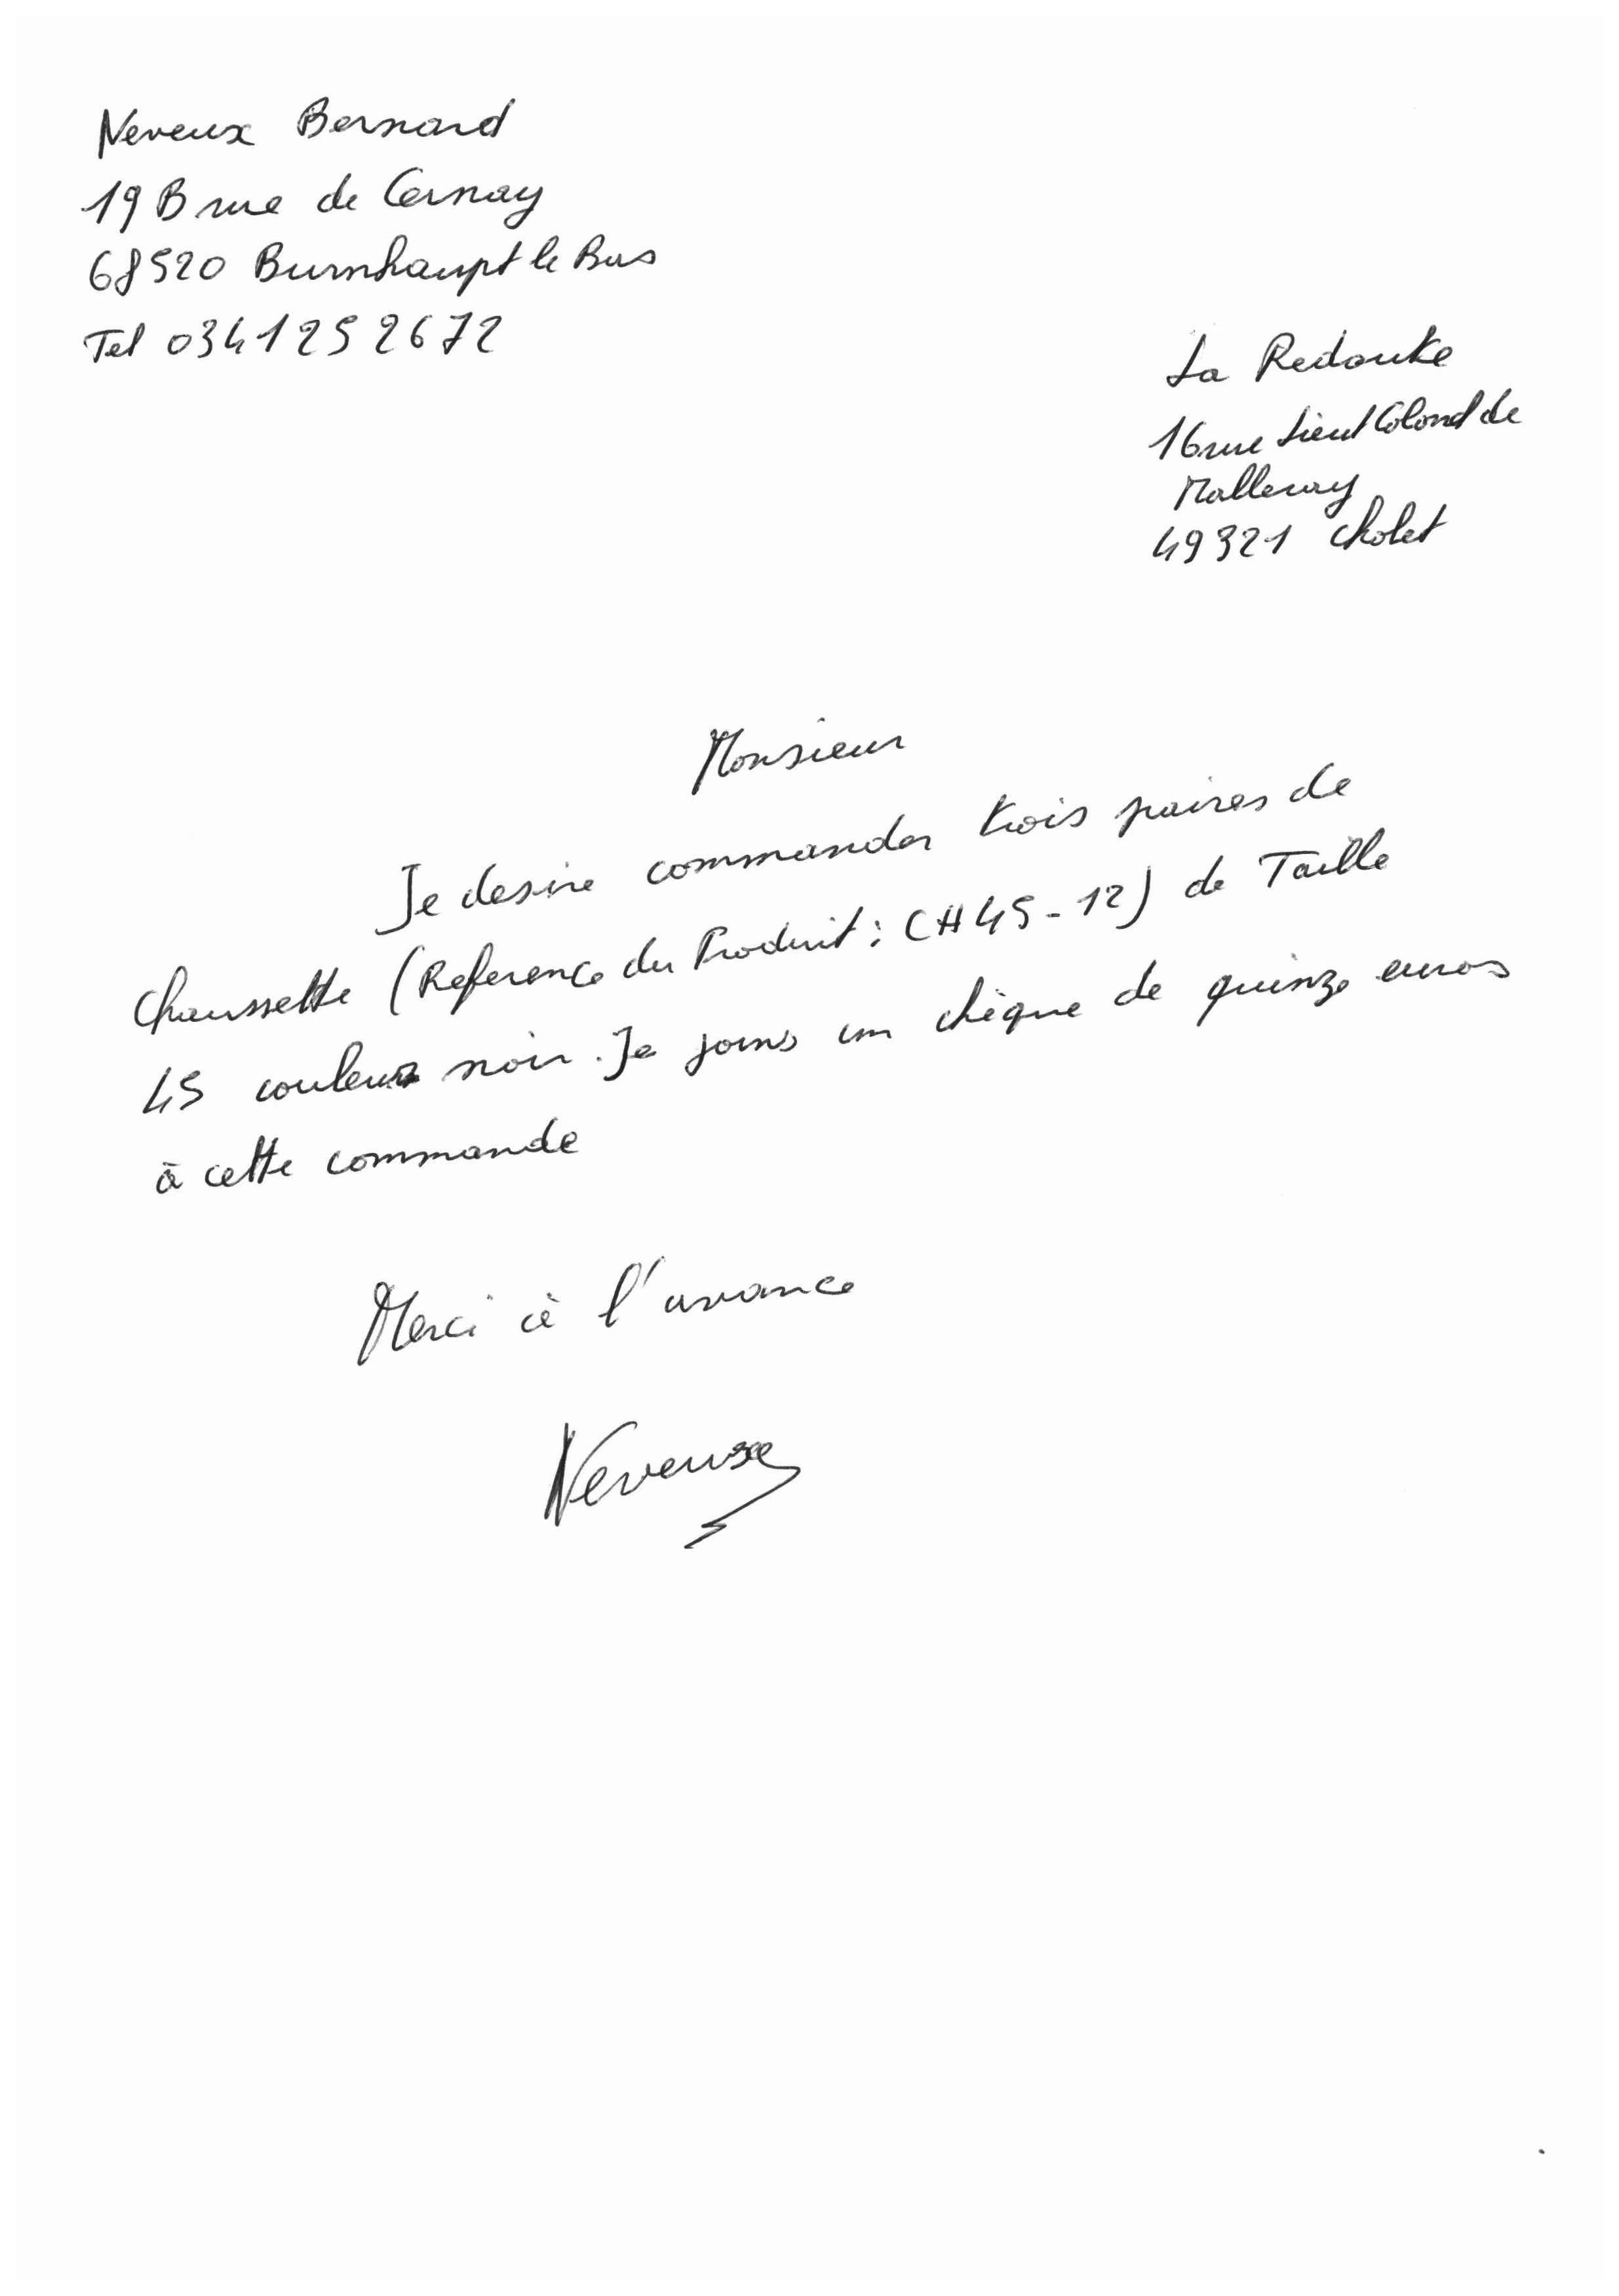 Neveux Bernard
19 B rue de Cernay
68520 Burnhaupt le Bas
Tel 0341252672
La Redoute
16 rue Lieut Colonel de
Malleray
49321 Cholet
Monsieur
Je desire commander trois paires de
Chaussette (Reference du Produit : CH45-12) de Taille
45 couleur noir. Je joins un chèque de quinze euros
à cette commande
Merci à l'avance
Neveux